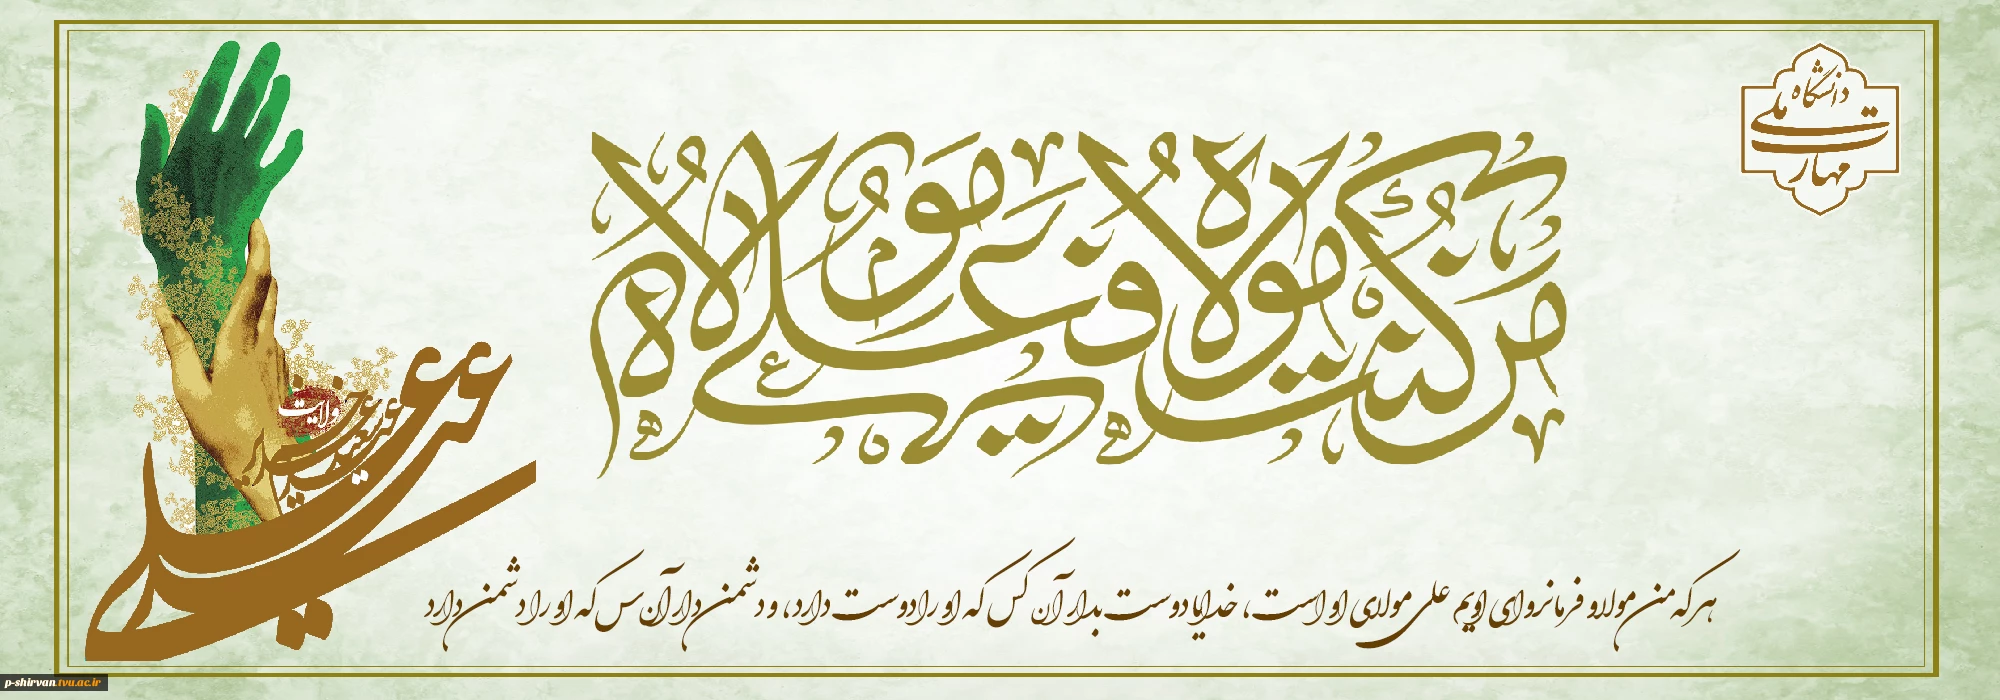 دانشگاه ملی
مهارت
من كنت مولاه فهذا علي مولاه
ولایت
عید
غدیر
علی
هر که من مولا و فرمانروای اویم علی مولای او است، خدایا دوست بدار آن کس که او را دوست دارد، و دشمن دار آن س که او را دشمن دارد
p-shirvan.tvu.ac.ir